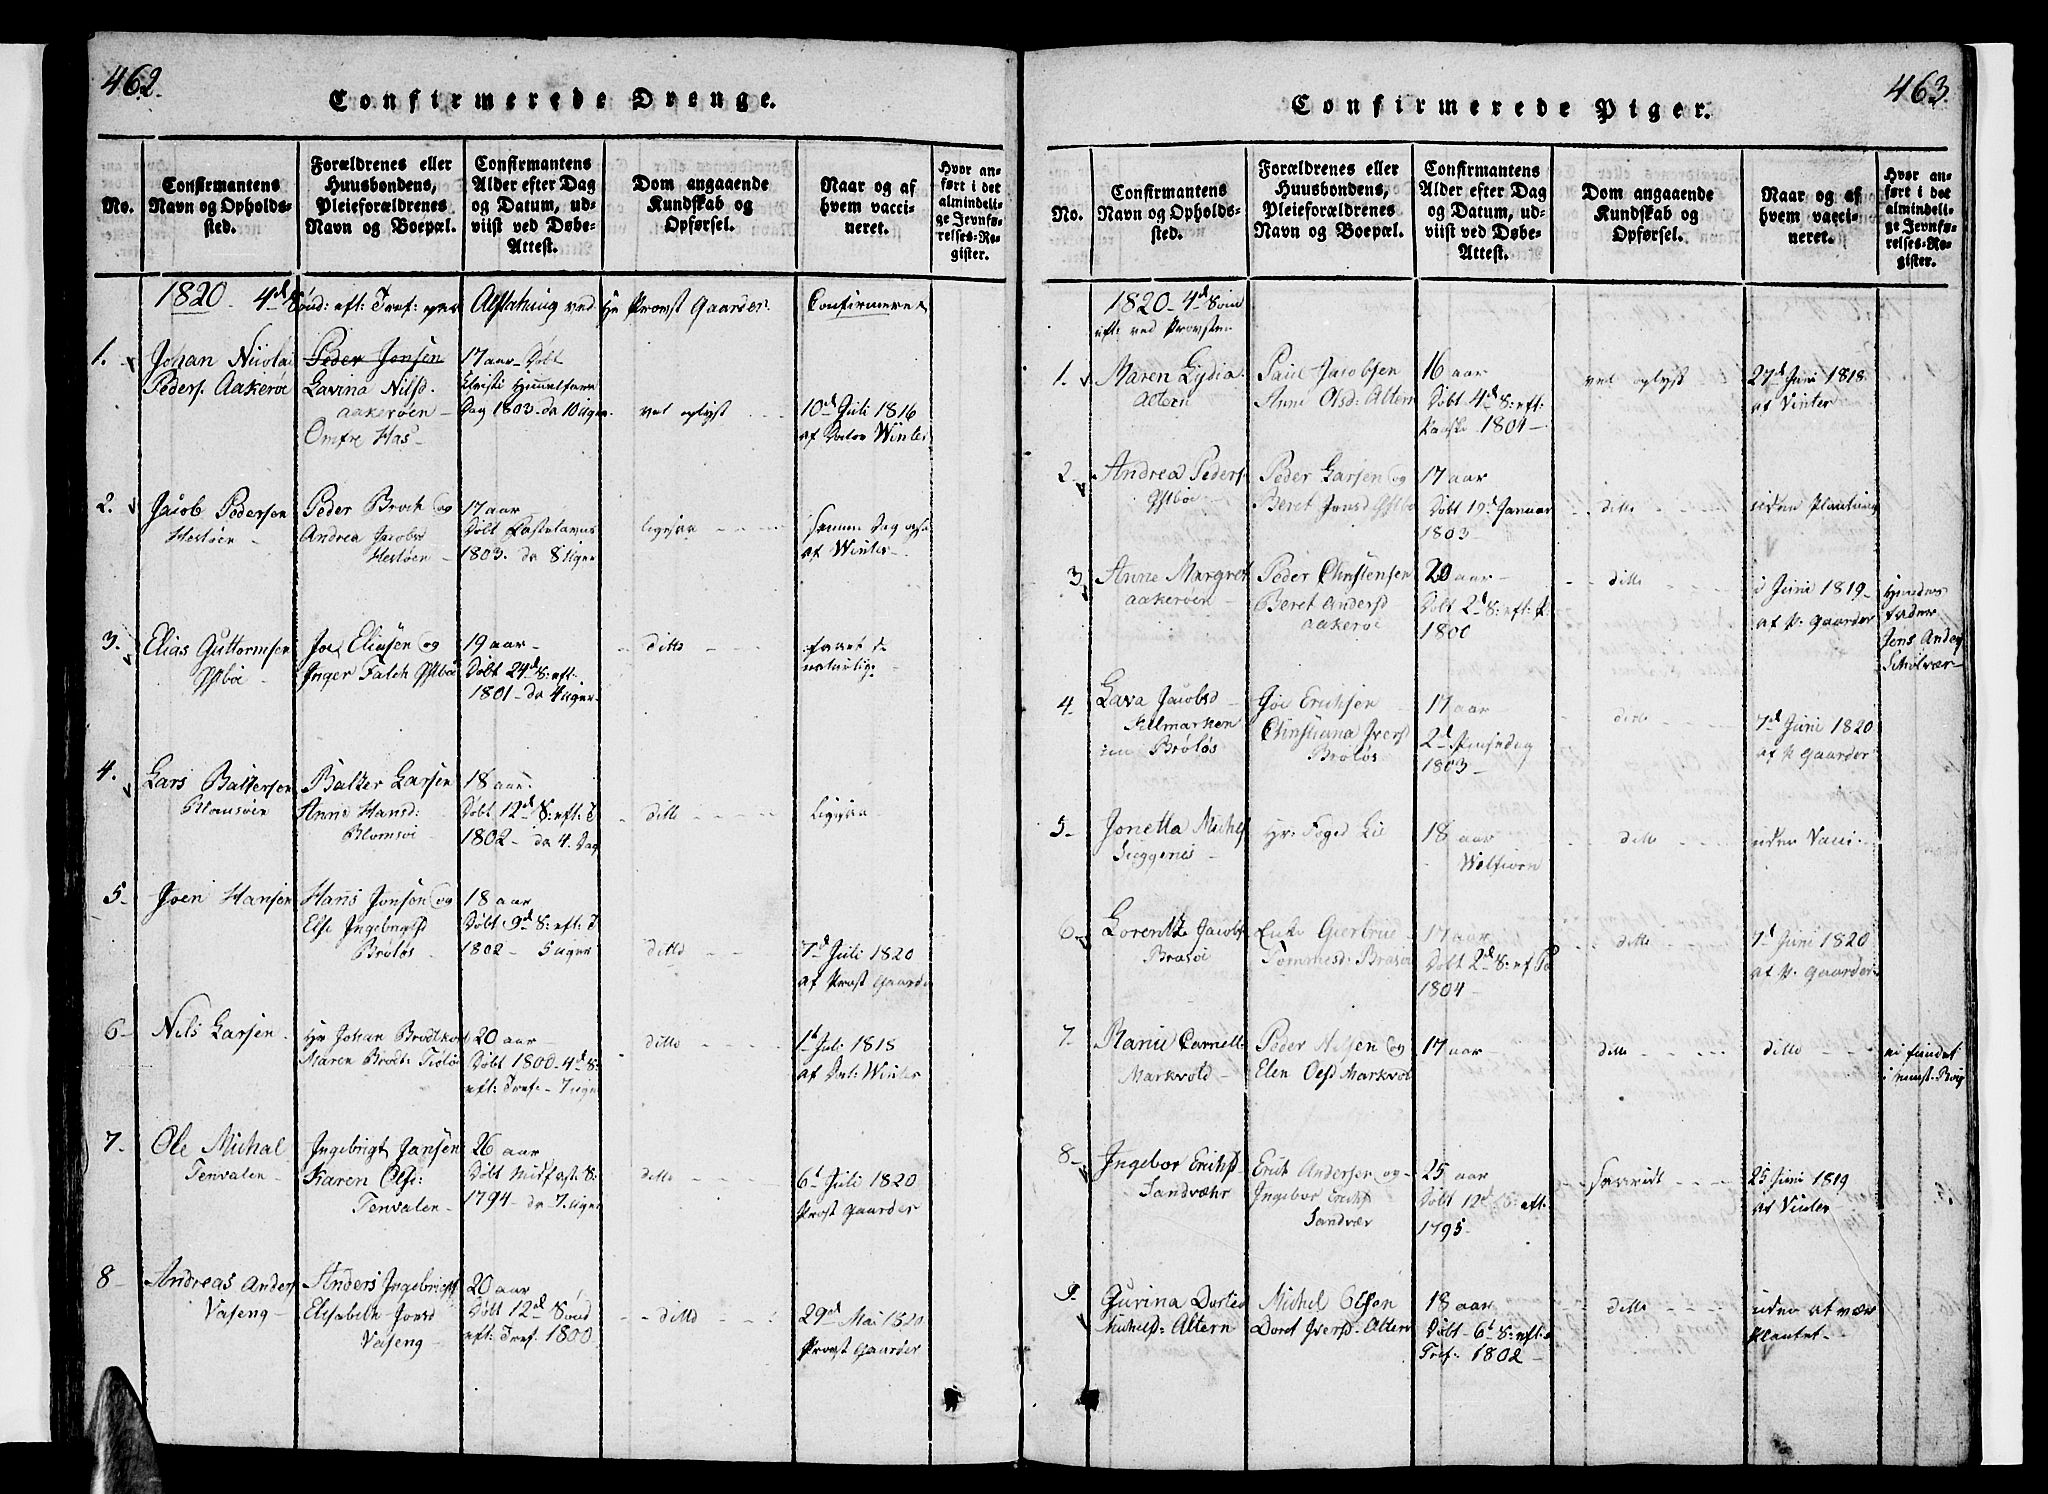 462.
Confirmerede Drenge.
No.
Confirmantens
Navn og Opholds-
sted.
Forældrenes eller
Huusbondens,
Pleieforældrenes
Navn og Boepæl.
Confirmantens
Alder efter Dag
og Datum, ud-
viist ved Døbe-
Attest.
Dom angaaende
Kundskab og
Opførsel.
Naar og af
hvem vacci-
neret.
Hvor an-
ført i det
almindeli-
ge Jevnfø-
relses-Re-
gister.
1820. 4d Sønd: eft: Tref: ved Hr Provst Gaarder. Confirmeret
1.
Johan Nicolai
Peders. Aakerøe
Peder Jensen
Lavina Nilsd.
Aakerøen
17 aar Døbt
Christi Himmelfarts
Dag 1803 da 10 uger
vel oplyst
10d Juli 1816
af Winter
2.
Jacob Pedersen
Hestøen
Peder Broch og
Andrea Jacobsd
Hestøen
17 aar
Døbt Fastelavns
1803. da 8 uger
ligesaa
samme Dag og
af Winter
3.
Elias Guttormsen
Ystbøe
Joe Eliasen og
Inger Falch Ystbøe
19 aar
Døbt 24d S: eft.
1801 da 4 uger
ditto
havt de
naturlige
4.
Lars Baltzersen
Blomsøen
Baltzer Larsen
Anne Hansd:
Blomsøe
18 aar
Døbt 12d S: eft: T
1802 da 4 Dag
ditto
ligesaa
5
Joen Hansen
Hans Jonsen og
Else Ingebrigtsd
Brøløs
18 aar
Døbt 9d S: eft: T
1802 5 uger
ditto
7d Juli 1820
af Provst Gaarder
6
Nils Larsen
Hr Johan Brodtkorb
Maren Brodtk: Tiøtøe
20 aar
Døbt 1800 4d S:
eft: Tref: 7 uger
ditto
1d Juli 1818
af Winter
7.
Ole Michal
Tenvalen
Ingebrigt Jansen
Karen Olsd:
Tenvalen
26 aar
Døbt Midfast: S:
1794 da 7 uger
ditto
6d Juli 1820
Provst Gaarder
8
Andreas Anders
Vaseng
Anders Ingebrigts
Elisabeth Jonsd
Vaseng
20 aar
Døbt 12d Sønd
eft: Tref. 1800
ditto
29d Mai 1820
Provst Gaarder
463.
Confirmerede Piger.
No.
Confirmantens
Navn og Opholds-
sted.
Forældrenes eller
Huusbondens,
Pleieforældrenes
Navn og Boepæl.
Confirmantens
Alder efter Dag
og Datum, ud-
viist ved Døbe-
Attest.
Dom angaaende
Kundskab og
Opførsel.
Naar og af
hvem vacci-
neret.
Hvor an-
ført i det
almindeli-
ge Jevnfø-
relses-Re-
gister.
1820 4d Søn
eft: ved Provsten
1.
Maren Lydia
Altern
Paul Jacobsen
Anne Olsd: Altern
16 aar
Døbt 4d S: eft:
Paaske 1804
vel oplyst
27d Juni 1818
af Vinter
2
Andrea Peders
Ystbøe
Peder Larsen og
Beret Jensd Ystbøe
17 aar
Døbt 19d Januar
1803
ditto
uden Plantning
3
Anne Margret
Aakerøen
Peder Christensen
Beret Andersd
Aakerøe
20 aar
Døbt 2d S: eft: P
1800
ditto
i Juni 1819
af P. Gaarder
Hendes
fader
Jens Anders
4
Lava Jacobsd
Brøløs
Joe Erichsen
Christiana Iversd
Brøløs
17 aar
2d Pintsedag
1803
ditto
7d Juni 1820
af P Gaarder
5
Jonetta Michels
Hr: Foged Lie
18 aar
ditto
uden Vacci
6
Lorentze Jacobs
Brasøe
Enke Giertrue
Tommesd: Brasøe
17 aar
Døbt 2d S: ef Pa
1804
ditto
7d Juni 1820
af P. Gaarder
7.
Ranie Cornell
Markvold
Peder Nilsen og
Elen Olsd Markvold
17 aar
ditto
ditto
ei fundet
8
Ingebor Erichsd
Sandværhr
Erich Andersen og
Ingebor Erichs
Sandvær
25 aar
Døbt 12d S: eft.
1795
25 Juni 1819
af Vinter
9.
Gurina Dortea
Michelsd: Altern
Michel Olsen
Doret Iversd. Altern
18 aar
Døbt 6d S: eft:
Tref: 1802
ditto
uden at vær
Plantet